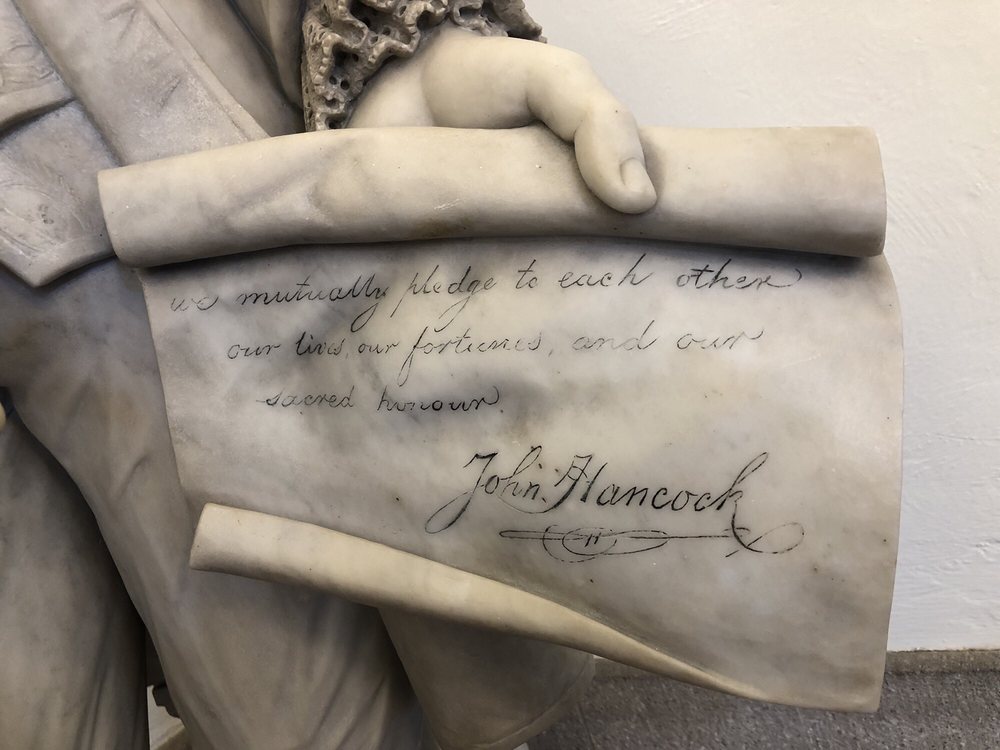 we mutually pledge to each other
our lives, our fortunes, and our
sacred honour.
John Hancock